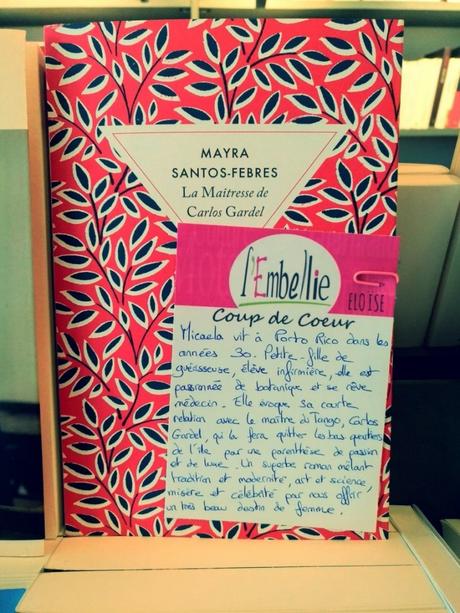 MAYRA
SANTOS-FEBRES
La Maîtresse de
Carlos Gardel
l'Embellie
ELOÏSE
Coup de Coeur
Micaela vit à Porto Rico dans les
années 30. Petite-fille de
guérisseuse, élève infirmière, elle est
passionnée de botanique et se rêve
médecin. Elle évoque sa courte
relation avec le maître du Tango, Carlos
Gardel, qui la fera quitter les bas quartiers
de l'île par une parenthèse de passion
et de luxe. Un superbe roman mêlant
tradition et modernité, art et science,
misère et célébrité pour nous offrir
un très beau destin de femme.